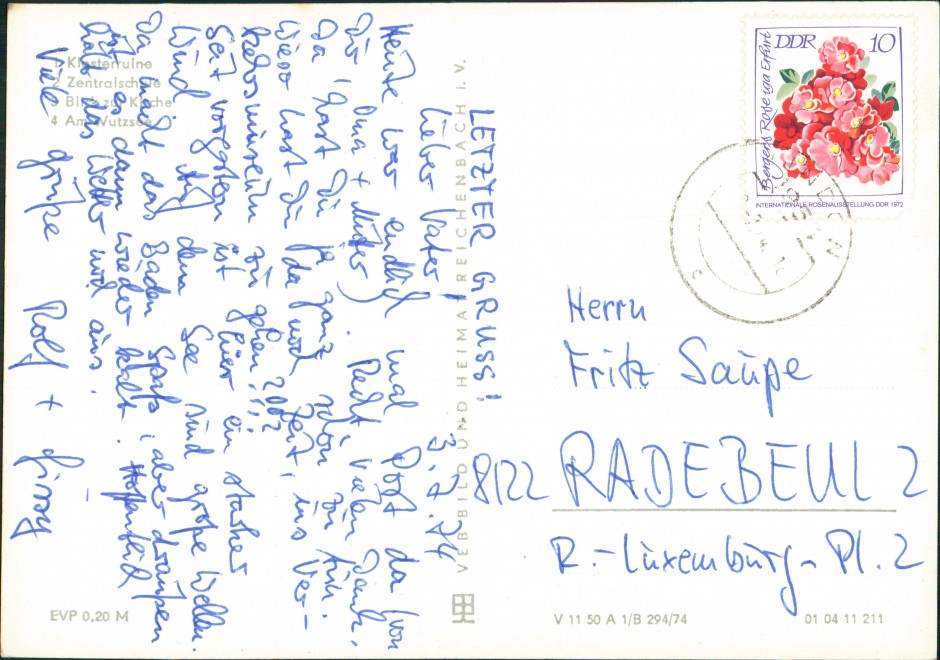 LETZTER GRUSS!
3.7.74
Lieber Vater!
Heute war endlich mal Post da von
Dir (Oma + Mutter). Recht vielen Dank.
Da hast Du ja ganz schön zu tun.
Wieso hast Du da noch Zeit, ins Ver-
kehrsmuseum zu gehen???
Seit vorgestern ist hier ein starker
Wind. Auf dem See sind große Wellen.
Da macht das Baden Spaß, aber draußen
ist es dann wieder kalt. Hoffentlich
hält das Wetter noch aus.
Viele Grüße Rolf +
1 Klosterruine
2 Zentralschule
3 Blick zur Kirche
4 Am Wutzsee
EVP 0,20 M
VEB BILD UND HEIMAT REICHENBACH I. V.
DDR 10
Bergens Rose iga Erfurt
INTERNATIONALE ROSENAUSSTELLUNG DDR 1972
Herrn
Fritz Saupe
8122 RADEBEUL 2
R.-Luxemburg-Pl. 2
V 11 50 A 1/B 294/74
01 04 11 211